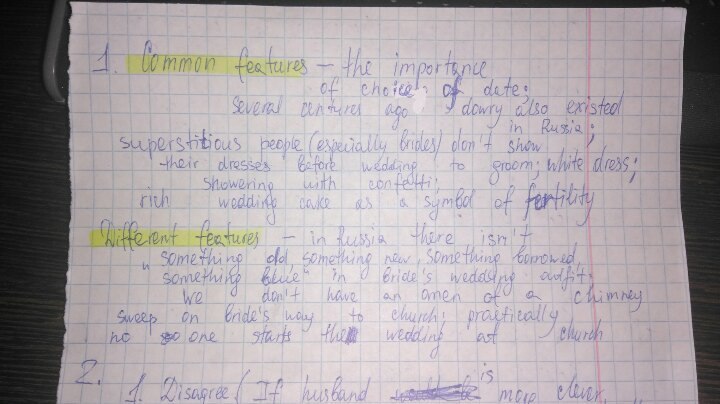 1. Common features – the importance
of choice of date;
several centures ago dowry also existed
in Russia;
superstitious people (especially brides) don't show
their dresses before wedding to groom; white dress;
showering with confetti;
rich wedding cake as a symbol of fertility
Different features – in Russia there isn't
"something old, something new, something borrowed,
something blue" in bride's wedding outfit.
We don't have an omen of a chimney
sweep on bride's way to church; practically
no one starts the wedding at church
2.
1. Disagree (If husband is more clever,